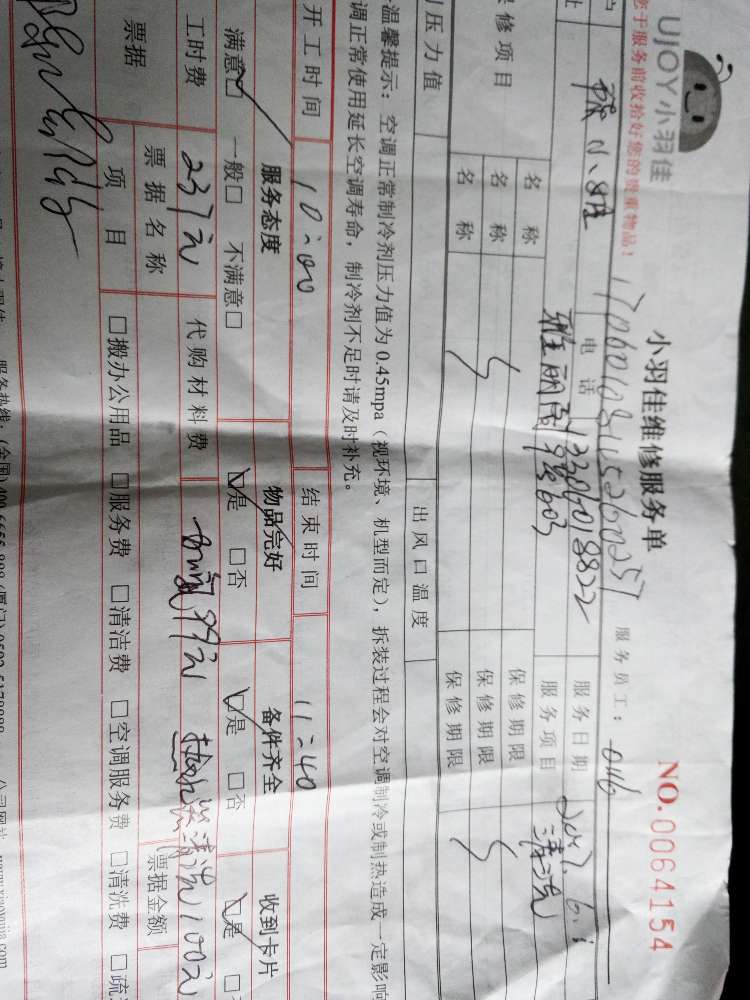 UJOY小羽佳
小羽佳维修服务单
NO.0064154
您于服务前收拾好您的贵重物品!
服务员工:
电话 13306018822
服务日期 2017.6.1
服务项目 清洗
保修项目
名称 保修期限
名称 保修期限
名称 保修期限
压力值 出风口温度
温馨提示:空调正常制冷剂压力值为0.45mpa(视环境、机型而定),拆装过程会对空调制冷或制热造成一定影响
调正常使用延长空调寿命,制冷剂不足时请及时补充。
开工时间 10:00 结束时间 11:40
服务态度 物品完好 备件齐全 收到卡片
满意☑ 一般□ 不满意□ ☑是 □否 ☑是 □否 ☑是
工时费 237元 代购材料费 加氟99元 清洗100元
票据 票据名称 票据金额
项目 □搬办公用品 □服务费 □清洁费 □空调服务费 □清洗费